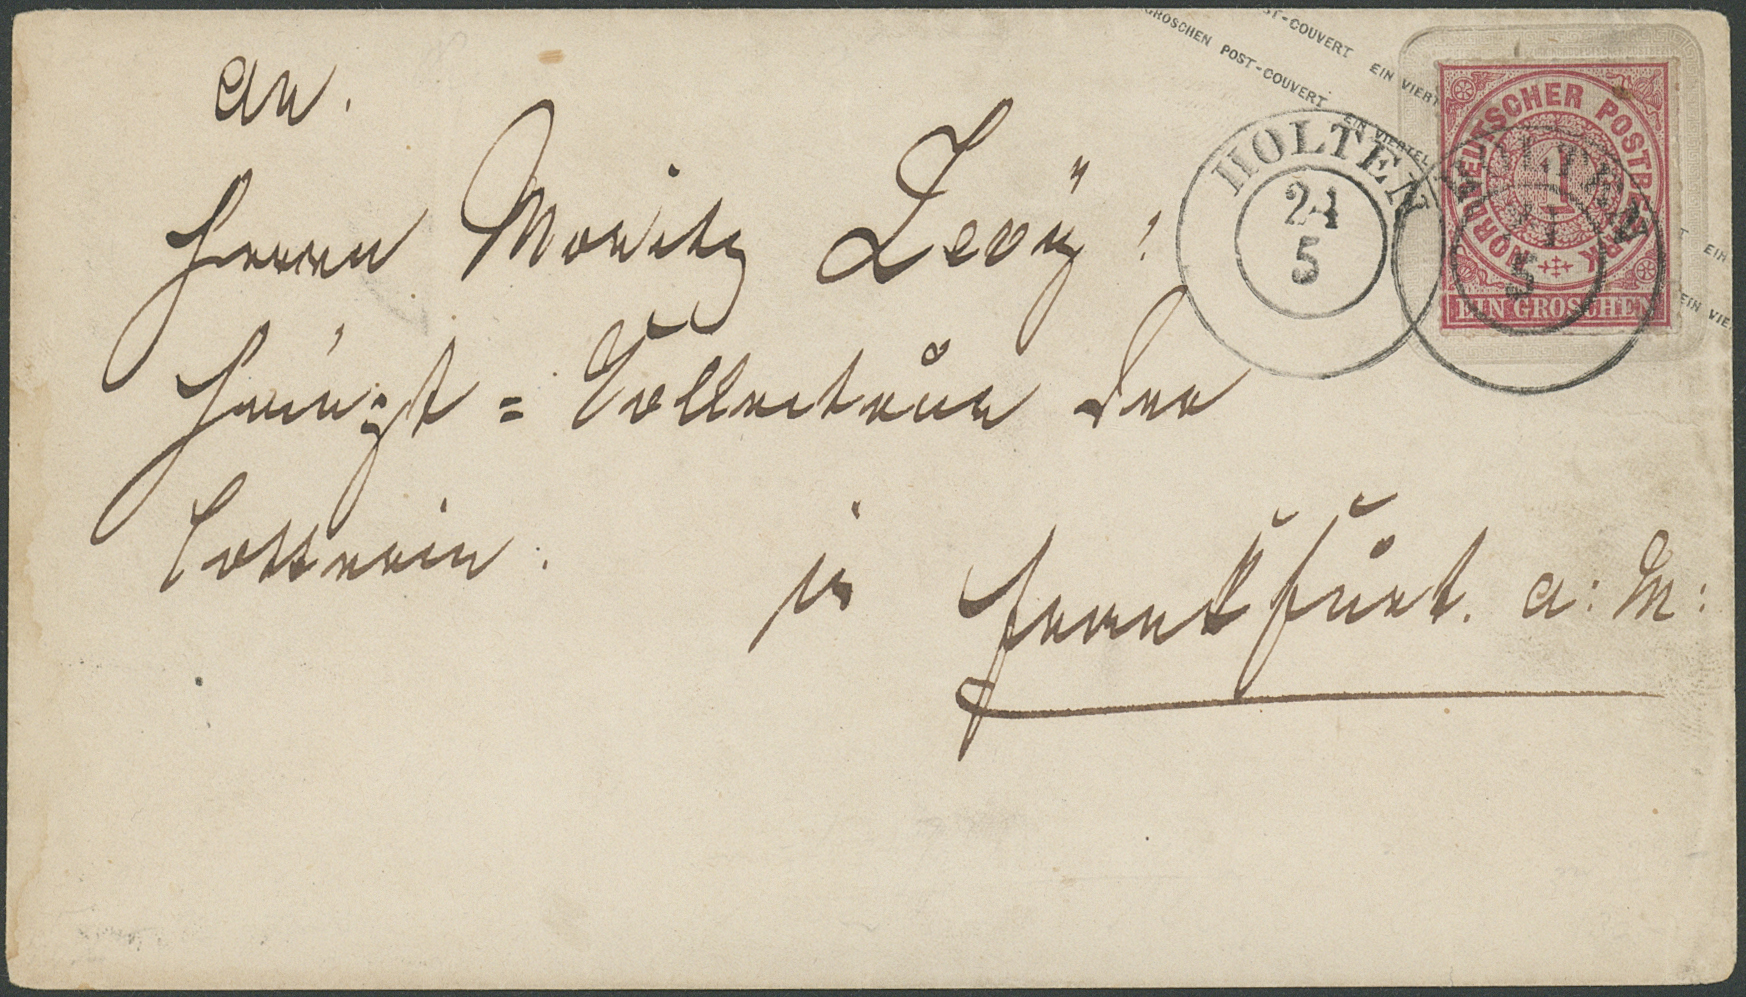 GROSCHEN POST-COUVERT EIN VIERTEL
ST-COUVERT EIN VIERT
NORDDEUTSCHER POSTBEZIRK
1
EIN GROSCHEN
EIN
EIN VIE
HOLTEN
21
5
HOLTEN
21
5
An.
Herrn Moritz Levÿ:
Haupt = Collecteur der
Lotterie :
in Frankfurt. a: M: